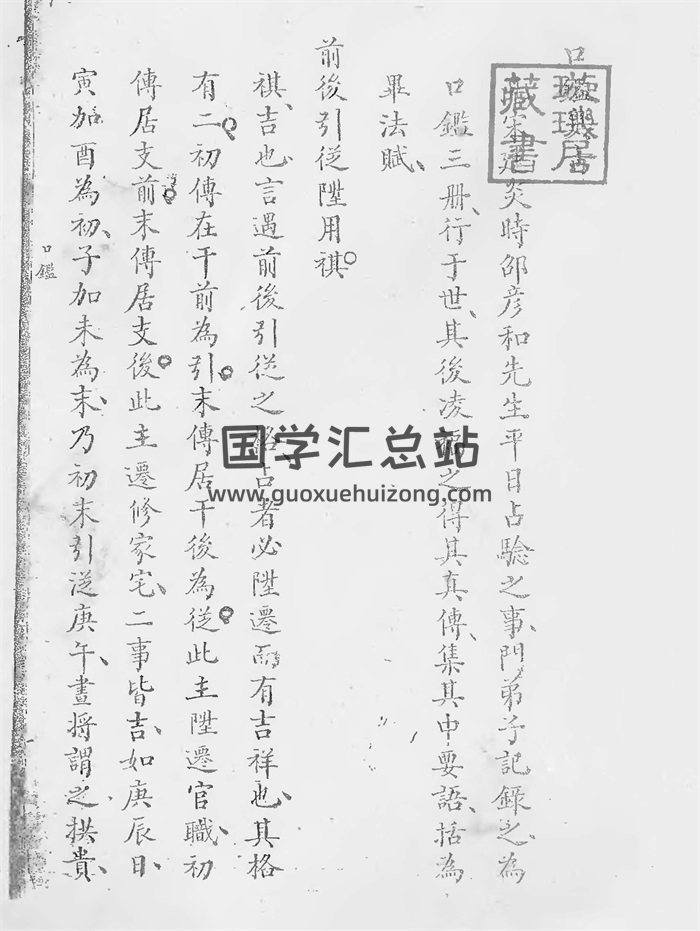 口鑑
宋建炎時邵彦和先生平日占驗之事、門弟子記錄之、為
口鑑三册、行于世、其後凌福之得其真傳、集其中要語、括為
畢法賦、
前後引從陞用祺
祺、吉也、言遇前後引從之格、占者必陞遷而有吉祥也、其格
有二、初傳在干前為引、末傳居干後為從、此主陞遷官職、初
傳居支前末傳居支後、此主遷修家宅、二事皆吉、如庚辰日、
寅加酉為初、子加未為末、乃初末引從庚午、晝將謂之拱貴、
口鑑
藏書
国学汇总站
www.guoxuehuizong.com